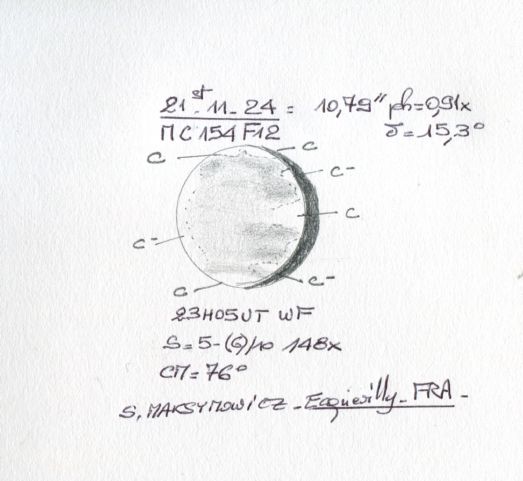 21st_11_24 = 10,79" ph=0,91x
MC 154 F12 δ=15,3°
C C
C-
C
C-
C C-
23H05UT WF
S=5-(6)/10 148x
CM=76°
S. MAKSYMOWICZ _ Ecquevilly _ FRA -